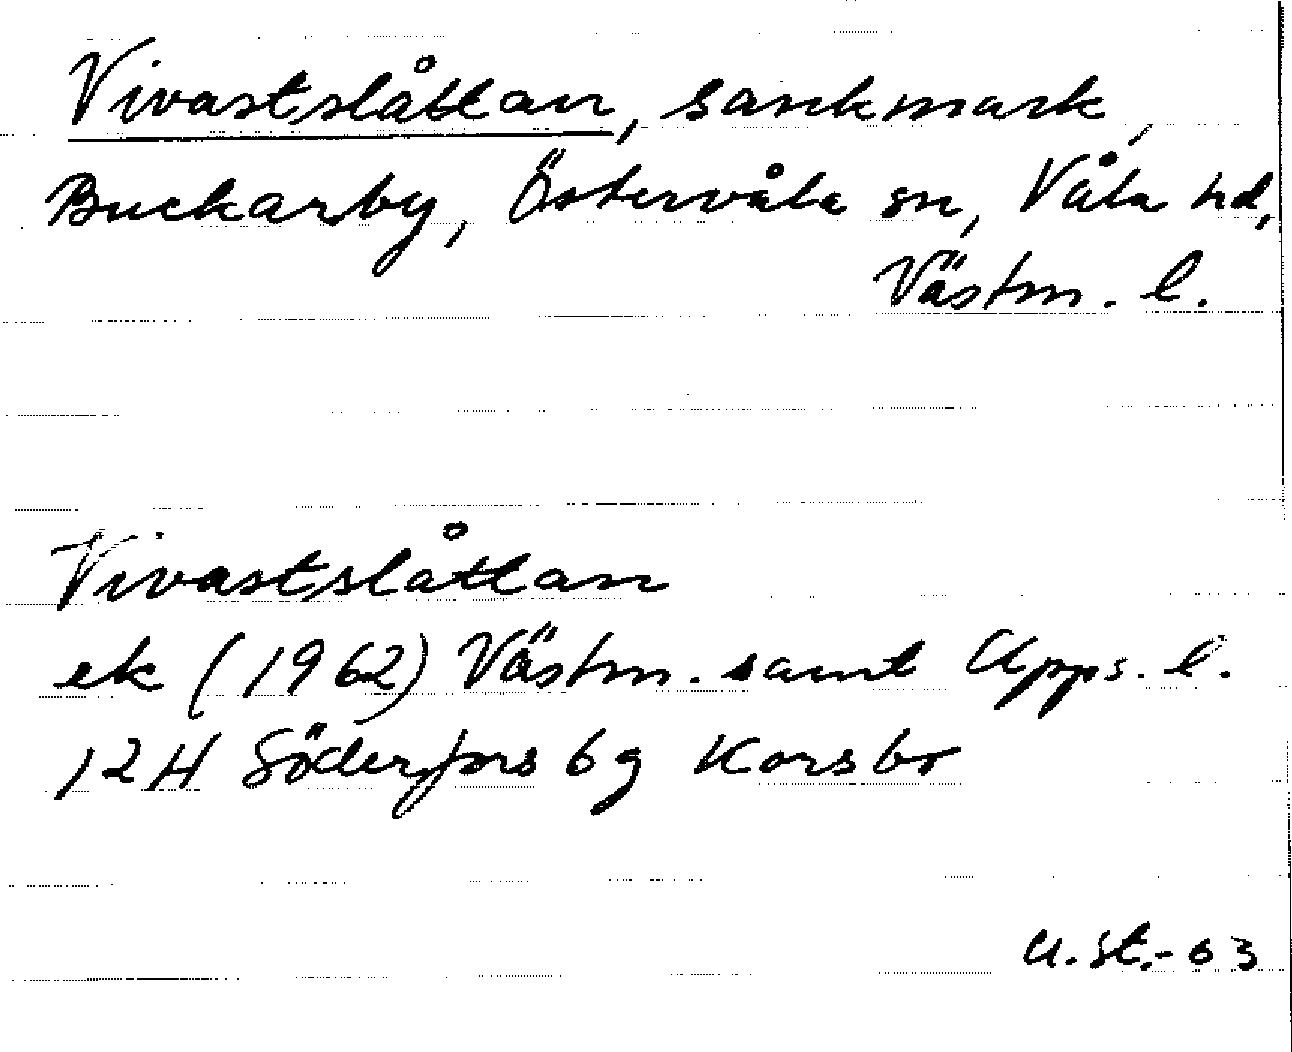 Vivastslåttan, sankmark,
Buckarby, Östervåla sn, Våla hd,
Västm. l.
Vivastslåttan
ek (1962) Västm. samt Upps. l.
12H Söderfors 6g Korsbo
U.St.-63